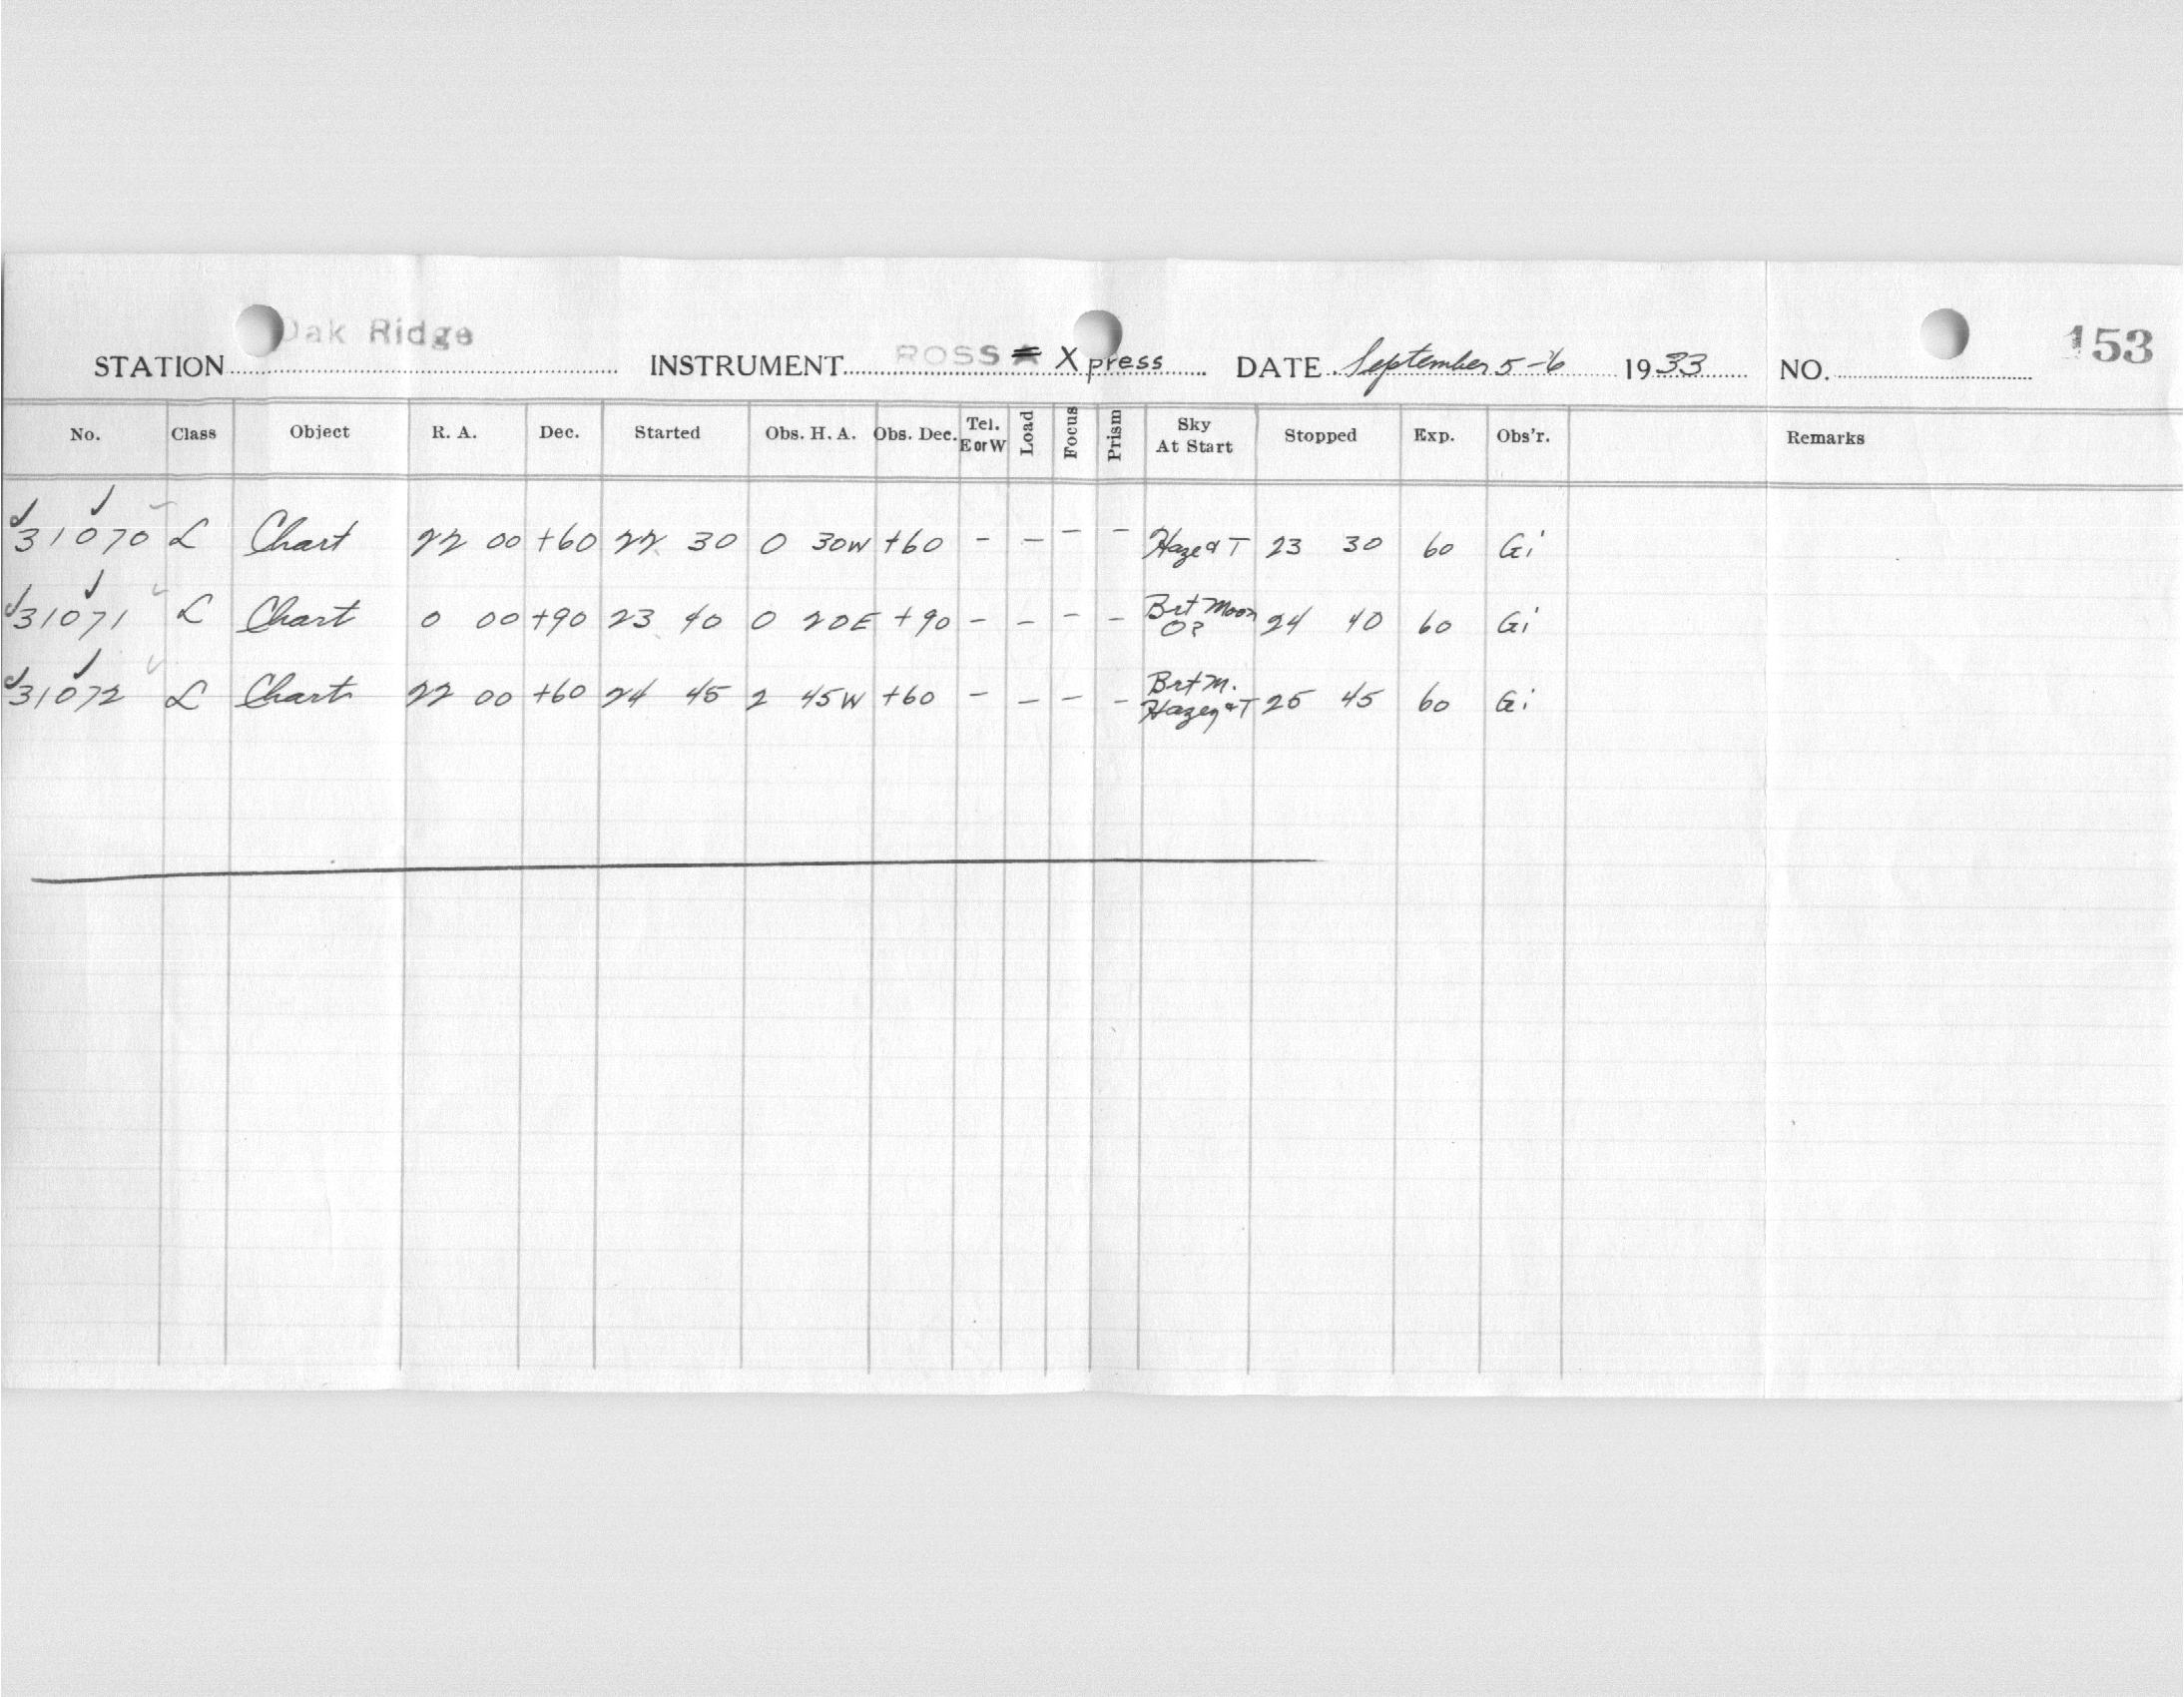 Oak Ridge
153
STATION INSTRUMENT ROSS Xpress DATE September 5-6 1933 NO.
No. Class Object R. A. Dec. Started Obs. H. A. Obs. Dec. Tel. E or W Load Focus Prism Sky At Start Stopped Exp. Obs'r. Remarks
31070 L Chart 22 00 +60 22 30 0 30W +60 - - - - Haze & T 23 30 60 Gi
31071 L Chart 0 00 +90 23 40 0 20E +90 - - - - Brt Moon 24 40 60 Gi
31072 L Chart 22 00 +60 24 45 2 45W +60 - - - - Brt M. Hazey & T 25 45 60 Gi